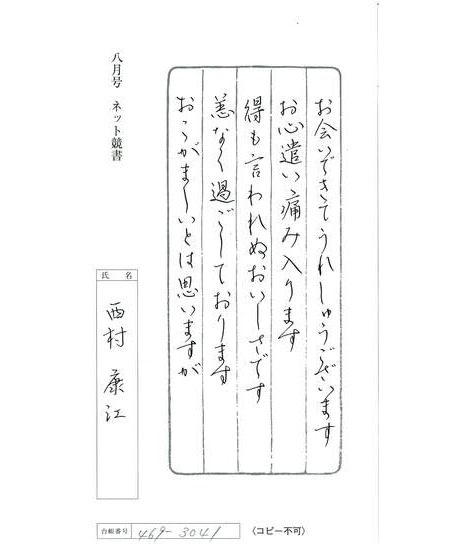 お会いできてうれしゅうございます
お心遣い痛み入ります
得も言われぬおいしさです
恙なく過ごしております
おこがましいとは思いますが
八月号 ネット競書
氏名
西村 康江
台帳番号 469-3041
〈コピー不可〉